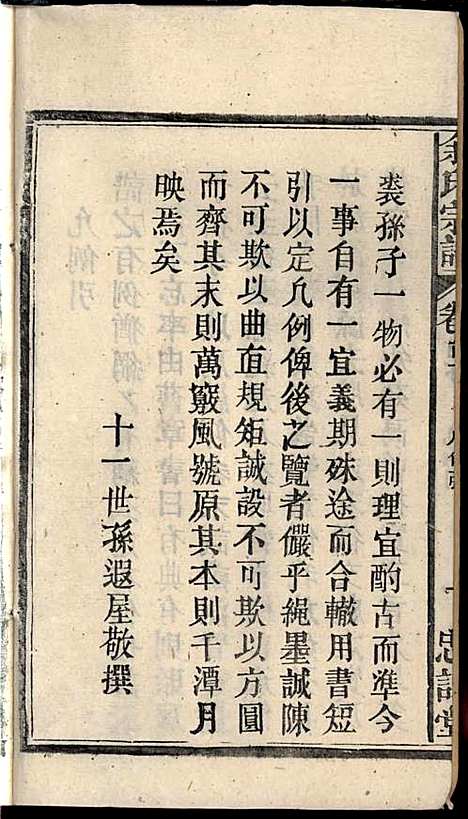 裘孫子一物必有一則理宜酌古而準今
一事自有一宜義期殊途而合轍用書短
引以定凡例俾後之覽者儼乎繩墨誠陳
不可欺以曲直規矩誠設不可欺以方圓
而齊其末則萬竅風號原其本則千潭月
映焉矣
十一世孫遐屋敬撰